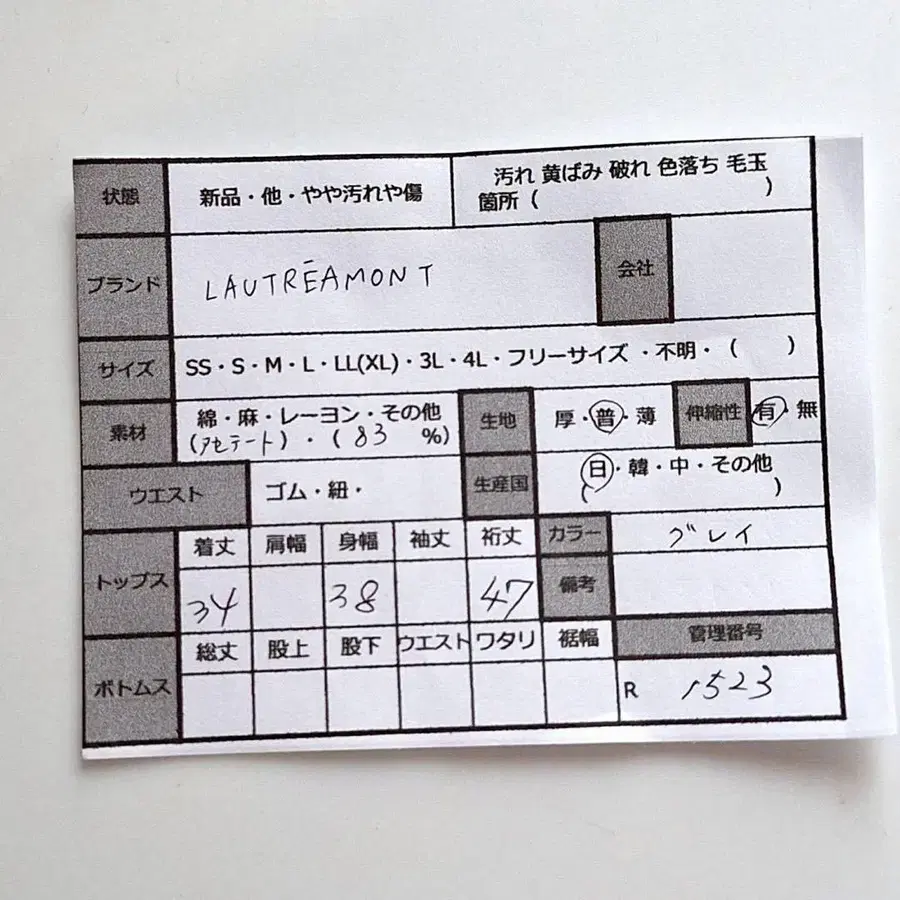 状態 新品・他・やや汚れや傷 汚れ 黄ばみ 破れ 色落ち 毛玉
箇所( )
ブランド LAUTRÉAMONT 会社
サイズ SS・S・M・L・LL(XL)・3L・4L・フリーサイズ・不明・( )
素材 綿・麻・レーヨン・その他 生地 厚・普・薄 伸縮性 有・無
(アセテート)・(83 %)
ウエスト ゴム・紐・ 生産国 日・韓・中・その他
( )
トップス 着丈 肩幅 身幅 袖丈 裄丈 カラー グレイ
34 38 47 備考
ボトムス 総丈 股上 股下 ウエスト ワタリ 裾幅 管理番号
R 1523